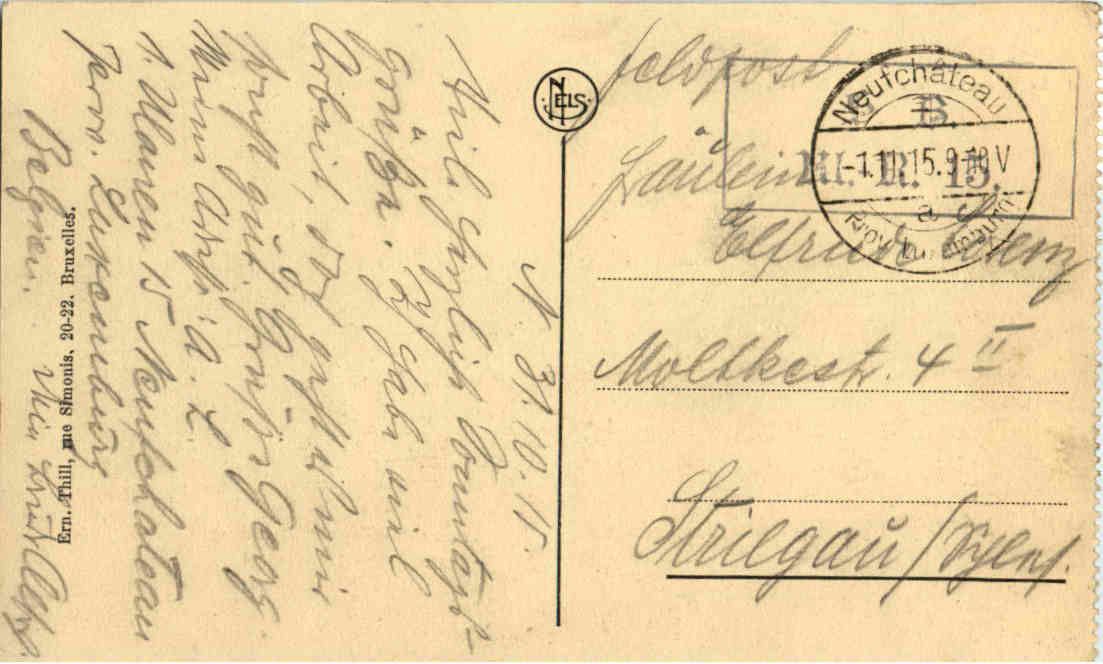 N. 31.10.15.
Viele herzliche Sonntags-
Grüße. Ich habe viel
Arbeit, sonst geht es mir
recht gut. Gruß Georg.
Meine Adr. i. d. L.
1. Ulanen 15 Neufchateau
Prov. Luxemburg
Belgien.
NELS
Ern. Thill, rue Simonis, 20-22. Bruxelles.
Feldpost
B.
M. R. 15.
Neufchâteau
-1.11.15.9-10V
a
Prov. Luxemburg
Fräulein
Elfriede
Moltkestr. 4 II
Striegau/Schles.